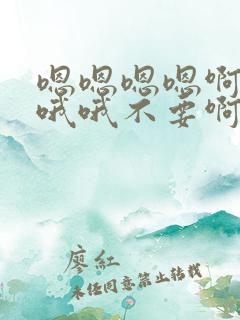 嗯嗯嗯嗯啊
哦哦不要啊
廖红
未经同意禁止转载